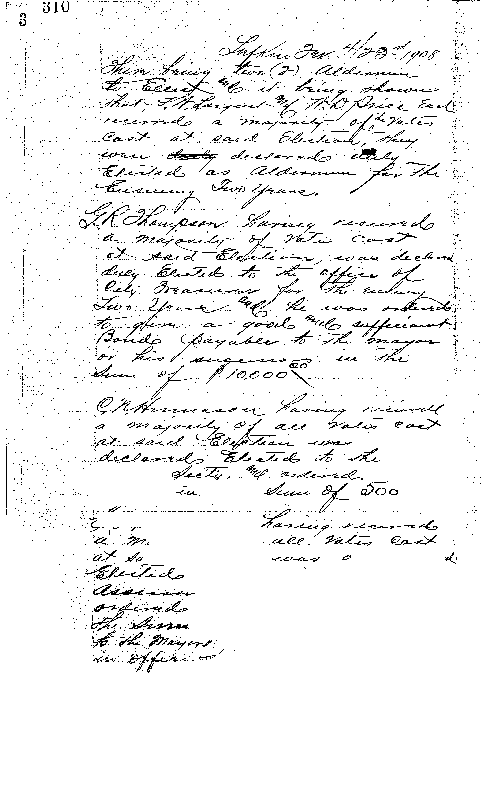 310
3
Lufkin Tex. 4/23rd 1908
There being two (2) Aldermen
to Elect & it being shown
that & W.D. Price Each
received a majority of the Votes
cast at said Election, they
were duly declared duly
Elected as Aldermen for the
Ensuing Two Years.
G.R. Thompson having received
a majority of Votes cast
at said Election, was declared
duly Elected to the office of
City Treasurer for the ensuing
Two Years & he was ordered
to give a good & sufficient
Bond payable to the mayor
or his successor in the
Sum of $10,000 00
having received
a majority of all Votes cast
at said Election was
declared Elected to the
Secty. & ordered
in Sum of 500
having received
a m. all Votes cast
at sa was
Elected
Assessor
ordered
the Sum
to the Mayor
in office or